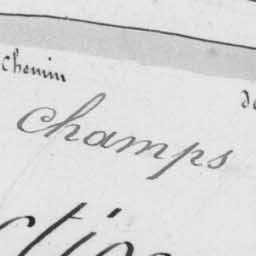 Chemin
de
Champs
ction